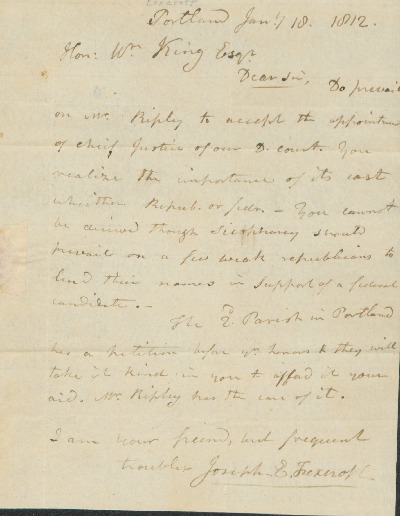 Portland Jany 18. 1812.
Hon: Wm King Esqr
Dear sir, Do prevail
on Mr. Ripley to accept the appointmen
of chief Justice of our D. court. You
realize the importance of its cast
whether Repub. or feder. — You cannot
be deceived though sycophancy should
prevail on a few weak republicans to
lend their names in support of a federal
candidate. —
The E. Parish in Portland
has a petition before yr. honors & they will
take it kind in you to afford it your
aid. Mr. Ripley has the care of it.
I am your friend, but frequent
troubler Joseph E. Foxcroft